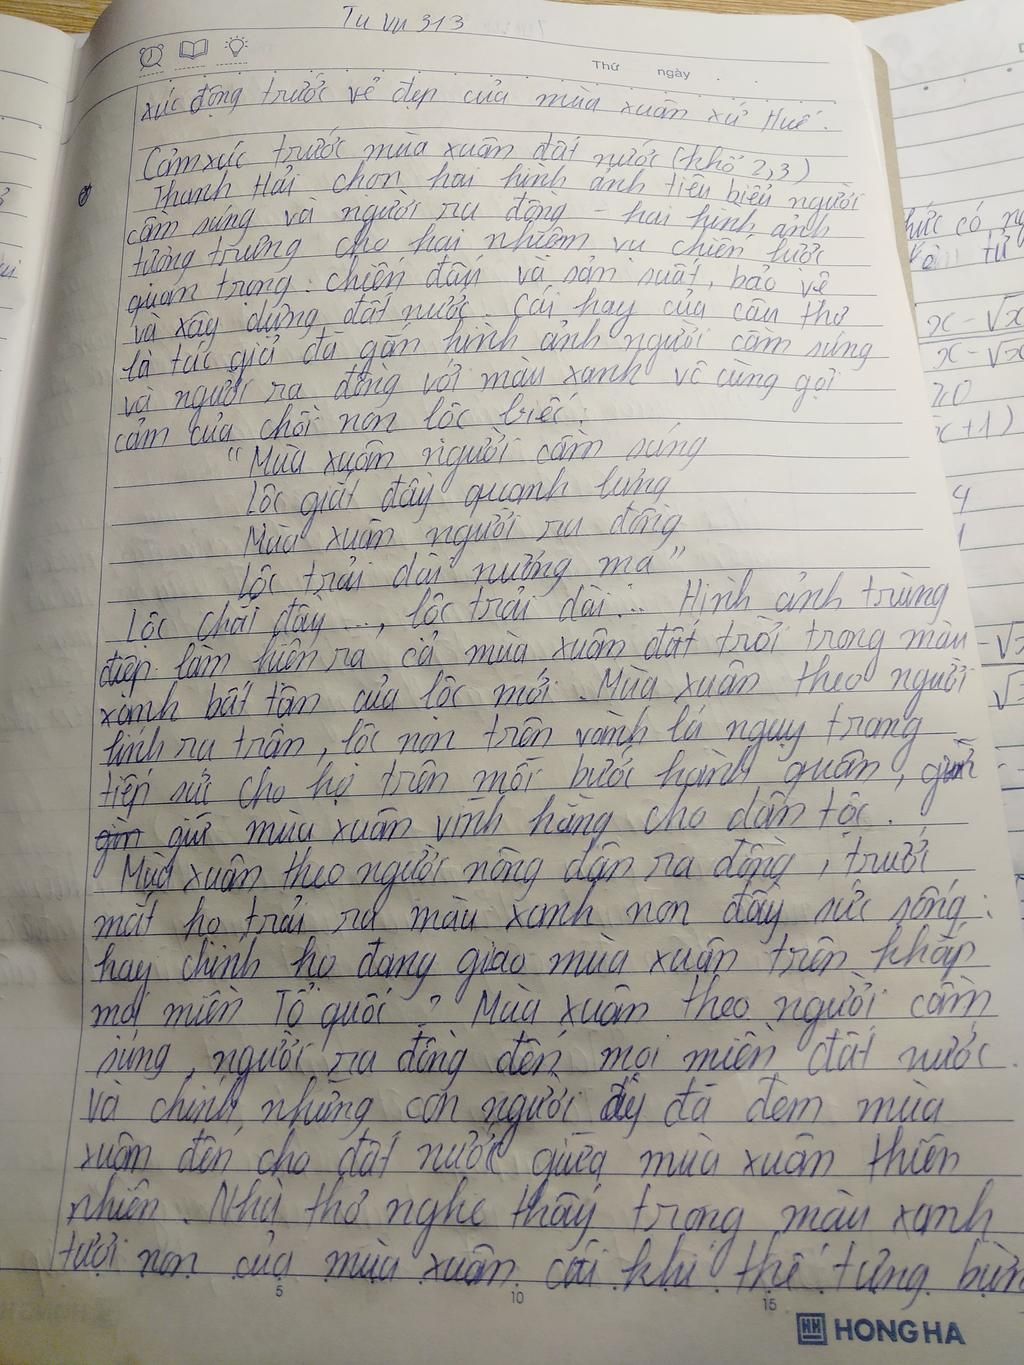 Tu vu 313
Thứ ngày
xúc động trước vẻ đẹp của mùa xuân xứ Huế.
Cảm xúc trước mùa xuân đất nước (khổ 2,3)
Thanh Hải chọn hai hình ảnh tiêu biểu người
cầm súng và người ra đồng - hai hình ảnh
tượng trưng cho hai nhiệm vụ chiến lược
quan trọng: chiến đấu và sản suất, bảo vệ
và xây dựng đất nước. Cái hay của câu thơ
là tác giả đã gắn hình ảnh người cầm súng
và người ra đồng với màu xanh vô cùng gợi
cảm của chồi non lộc biếc:
"Mùa xuân người cầm súng
Lộc giắt đầy quanh lưng
Mùa xuân người ra đồng
Lộc trải dài nương mạ"
Lộc chải đầy..., lộc trải dài... Hình ảnh trùng
điệp làm hiện ra cả mùa xuân đất trời trong màu
xanh bất tận của lộc mới. Mùa xuân theo người
lính ra trận, lộc non trên vành lá ngụy trang
tiếp sức cho họ trên mỗi bước hành quân, gìn
giữ mùa xuân vĩnh hằng cho dân tộc.
Mùa xuân theo người nông dân ra đồng, trước
mắt họ trải ra màu xanh non đầy sức sống:
hay chính họ đang gieo mùa xuân trên khắp
mọi miền Tổ quốc? Mùa xuân theo người cầm
súng, người ra đồng đến mọi miền đất nước.
Và chính những con người ấy đã đem mùa
xuân đến cho đất nước giữa mùa xuân thiên
nhiên. Nhà thơ nghe thấy trong màu xanh
tươi non của mùa xuân cái khí thế tưng bừn
5 10 15
HH HONG HA
hức có
tử
x - √x
x - √x
x+1)
4